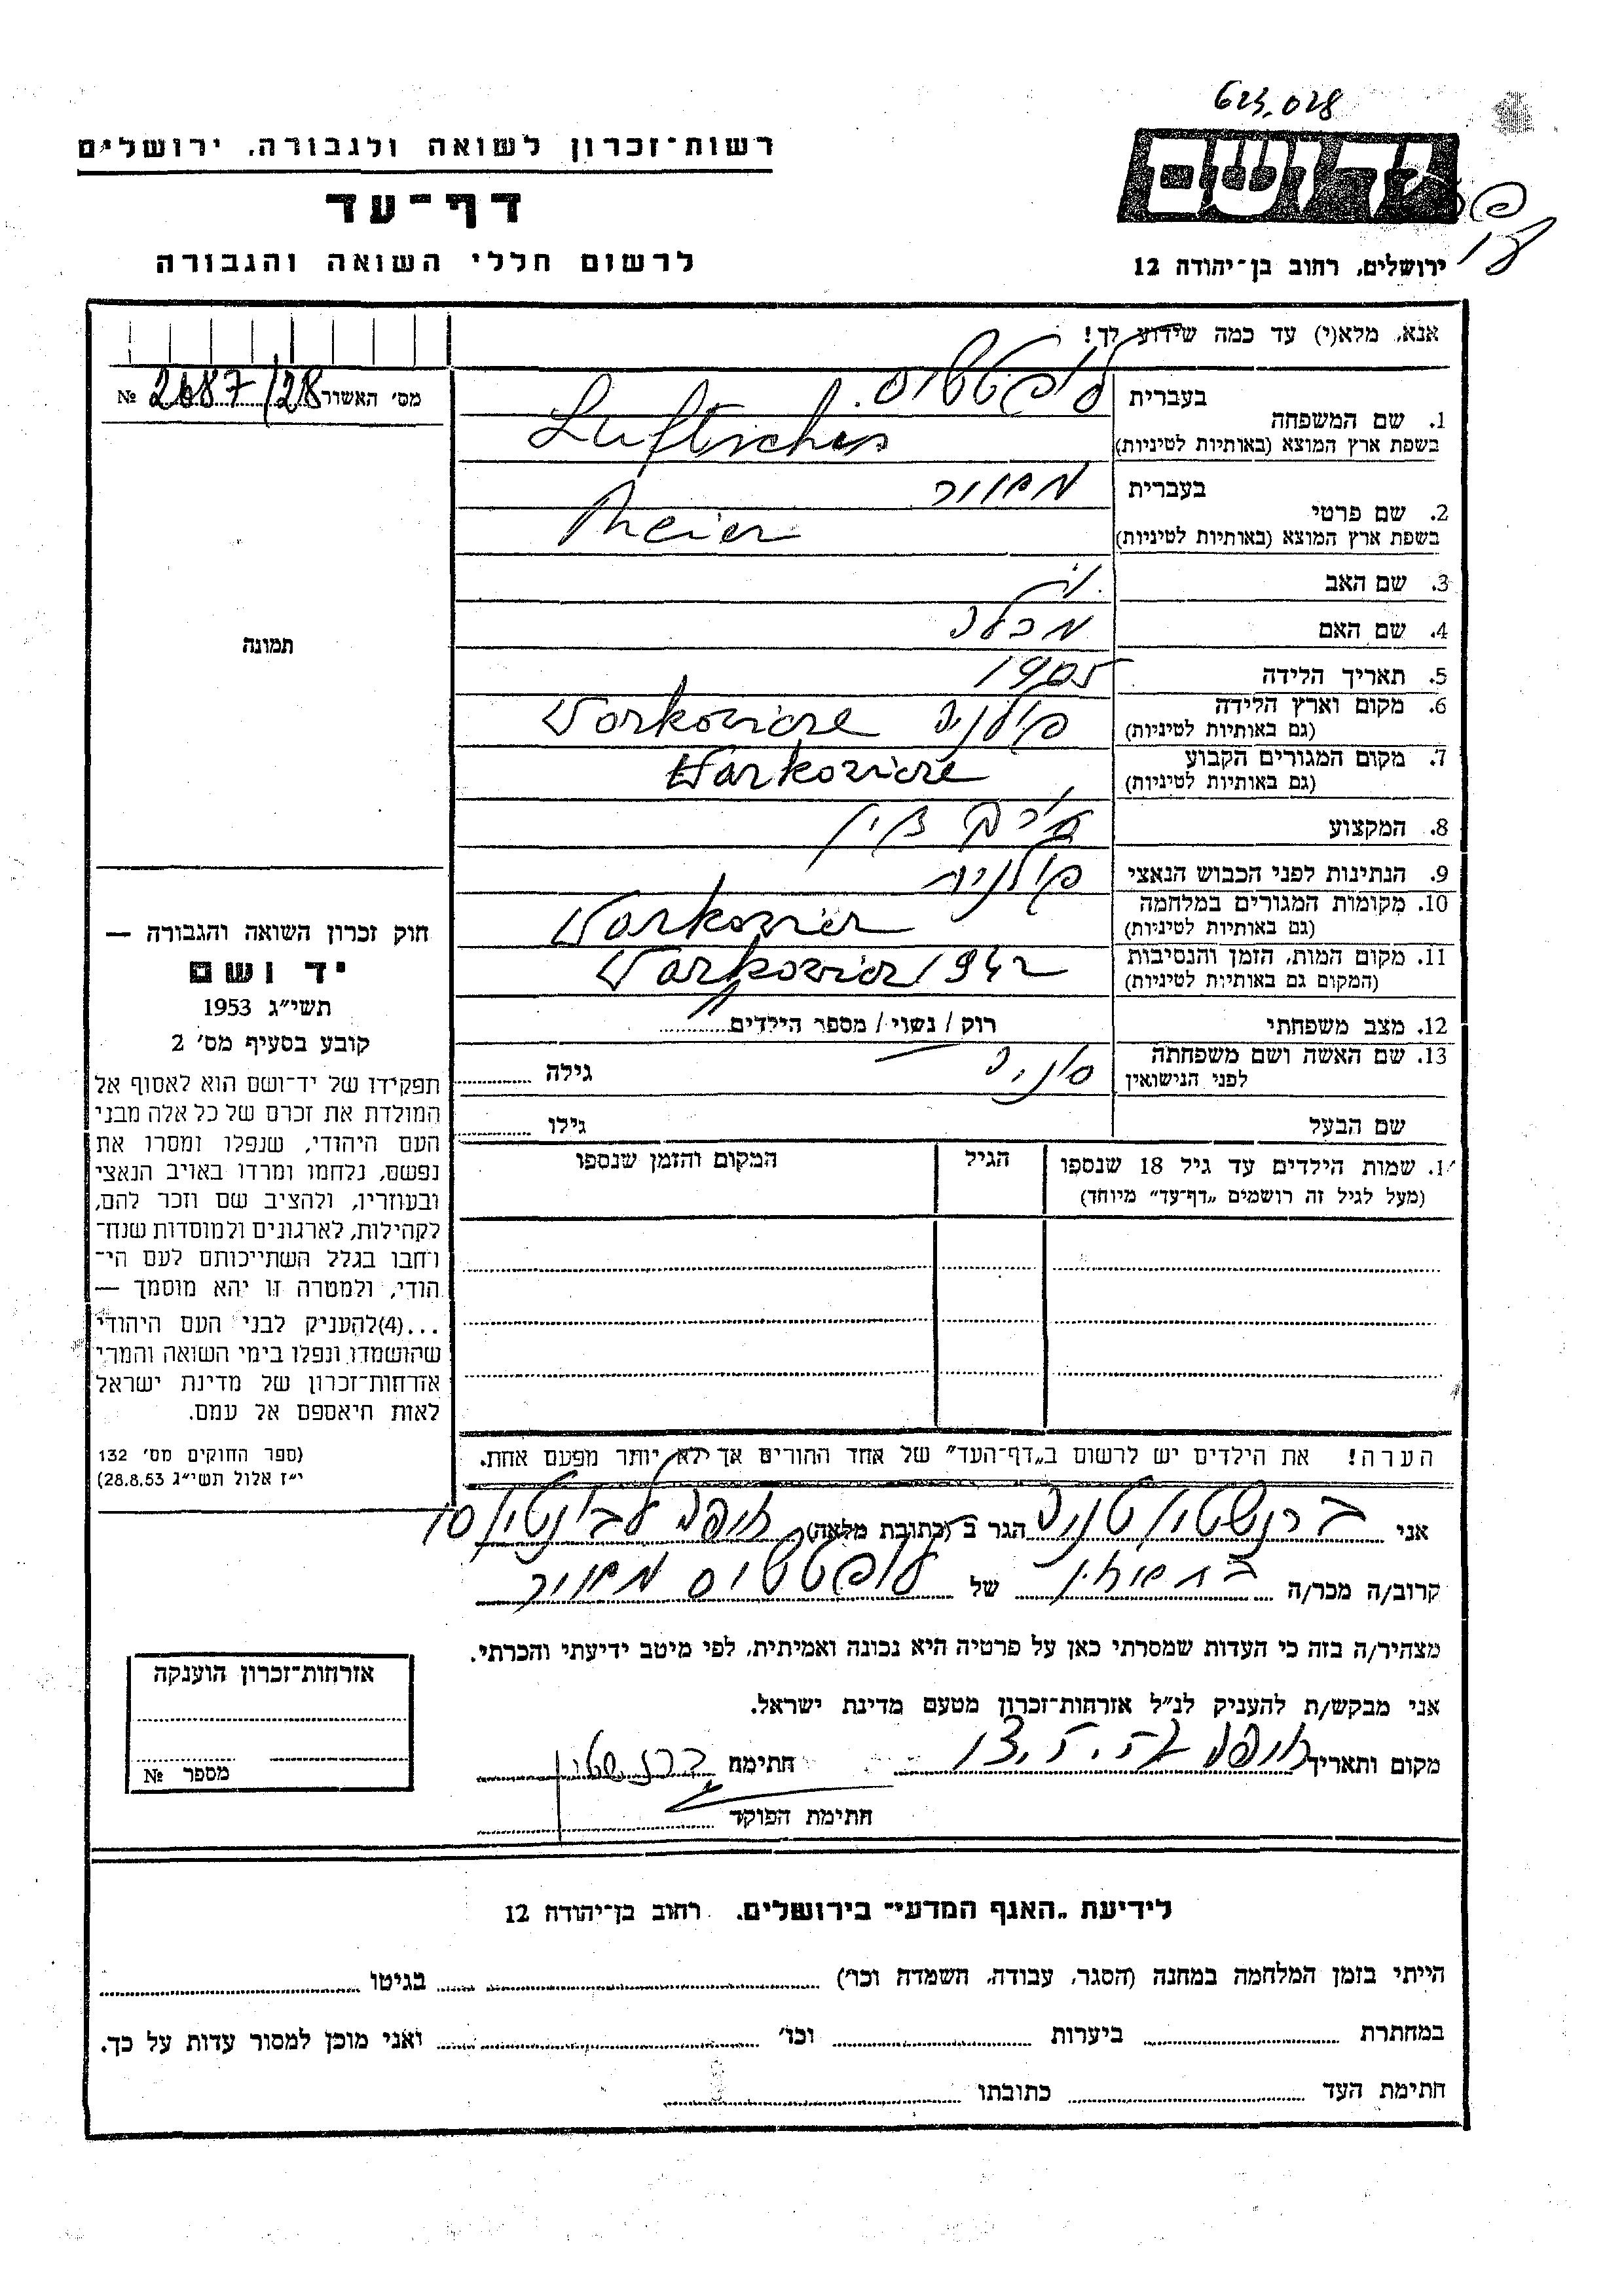 623.028
רשות־זכרון לשואה ולגבורה. ירושלים
דף־עד
לרשום חללי השואה והגבורה
ירושלים, רחוב בן־יהודה 12
אנא, מלא(י) עד כמה שידוע לך!
מס׳ האשור 2687/28 №
1. שם המשפחה
בעברית לופטשיס
בשפת ארץ המוצא (באותיות לטיניות) Luftsches
2. שם פרטי
בעברית מאיר
בשפת ארץ המוצא (באותיות לטיניות) Meier
3. שם האב
4. שם האם
5. תאריך הלידה 1905
6. מקום וארץ הלידה פולניה
(גם באותיות לטיניות)
7. מקום המגורים הקבוע
(גם באותיות לטיניות)
8. המקצוע
9. הנתינות לפני הכבוש הנאצי פולנית
10. מקומות המגורים במלחמה
(גם באותיות לטיניות)
11. מקום המות, הזמן והנסיבות 1942
(המקום גם באותיות לטיניות)
12. מצב משפחתי רוק / נשוי / מספר הילדים
13. שם האשה ושם משפחתה סוניה גילה
לפני הנישואין
שם הבעל גילו
שמות הילדים עד גיל 18 שנספו הגיל המקום והזמן שנספו
(מעל לגיל זה רושמים „דף־עד״ מיוחד)
הערה! את הילדים יש לרשום ב„דף־העד״ של אחד ההורים אך לא יותר מפעם אחת.
תמונה
חוק זכרון השואה והגבורה —
יד ושם
תשי״ג 1953
קובע בסעיף מס׳ 2
תפקידו של יד־ושם הוא לאסוף אל
המולדת את זכרם של כל אלה מבני
העם היהודי, שנפלו ומסרו את
נפשם, נלחמו ומרדו באויב הנאצי
ובעוזריו, ולהציב שם וזכר להם,
לקהילות, לארגונים ולמוסדות שנח־
רחבו בגלל השתייכותם לעם הי־
הודי, ולמטרה זו יהא מוסמך —
...(4)להעניק לבני העם היהודי
שהושמדו ונפלו בימי השואה והמרי
אזרחות־זכרון של מדינת ישראל
לאות היאספם אל עמם.
(ספר החוקים מס׳ 132
י״ז אלול תשי״ג 28.8.53)
אני ברנשטיין טוניה הגר ב (כתובת מלאה) חיפה
קרוב/ה מכר/ה של לופטשיס מאיר
מצהיר/ה בזה כי העדות שמסרתי כאן על פרטיה היא נכונה ואמיתית, לפי מיטב ידיעתי והכרתי.
אני מבקש/ת להעניק לנ״ל אזרחות־זכרון מטעם מדינת ישראל.
מקום ותאריך חיפה חתימה ברנשטיין
חתימת הפוקד
אזרחות־זכרון הוענקה
מספר №
לידיעת „האגף המדעי״ בירושלים. רחוב בן־יהודה 12
הייתי בזמן המלחמה במחנה (הסגר, עבודה, השמדה וכו׳) בגיטו
במחתרת ביערות וכו׳ ואני מוכן למסור עדות על כך.
חתימת העד כתובתו